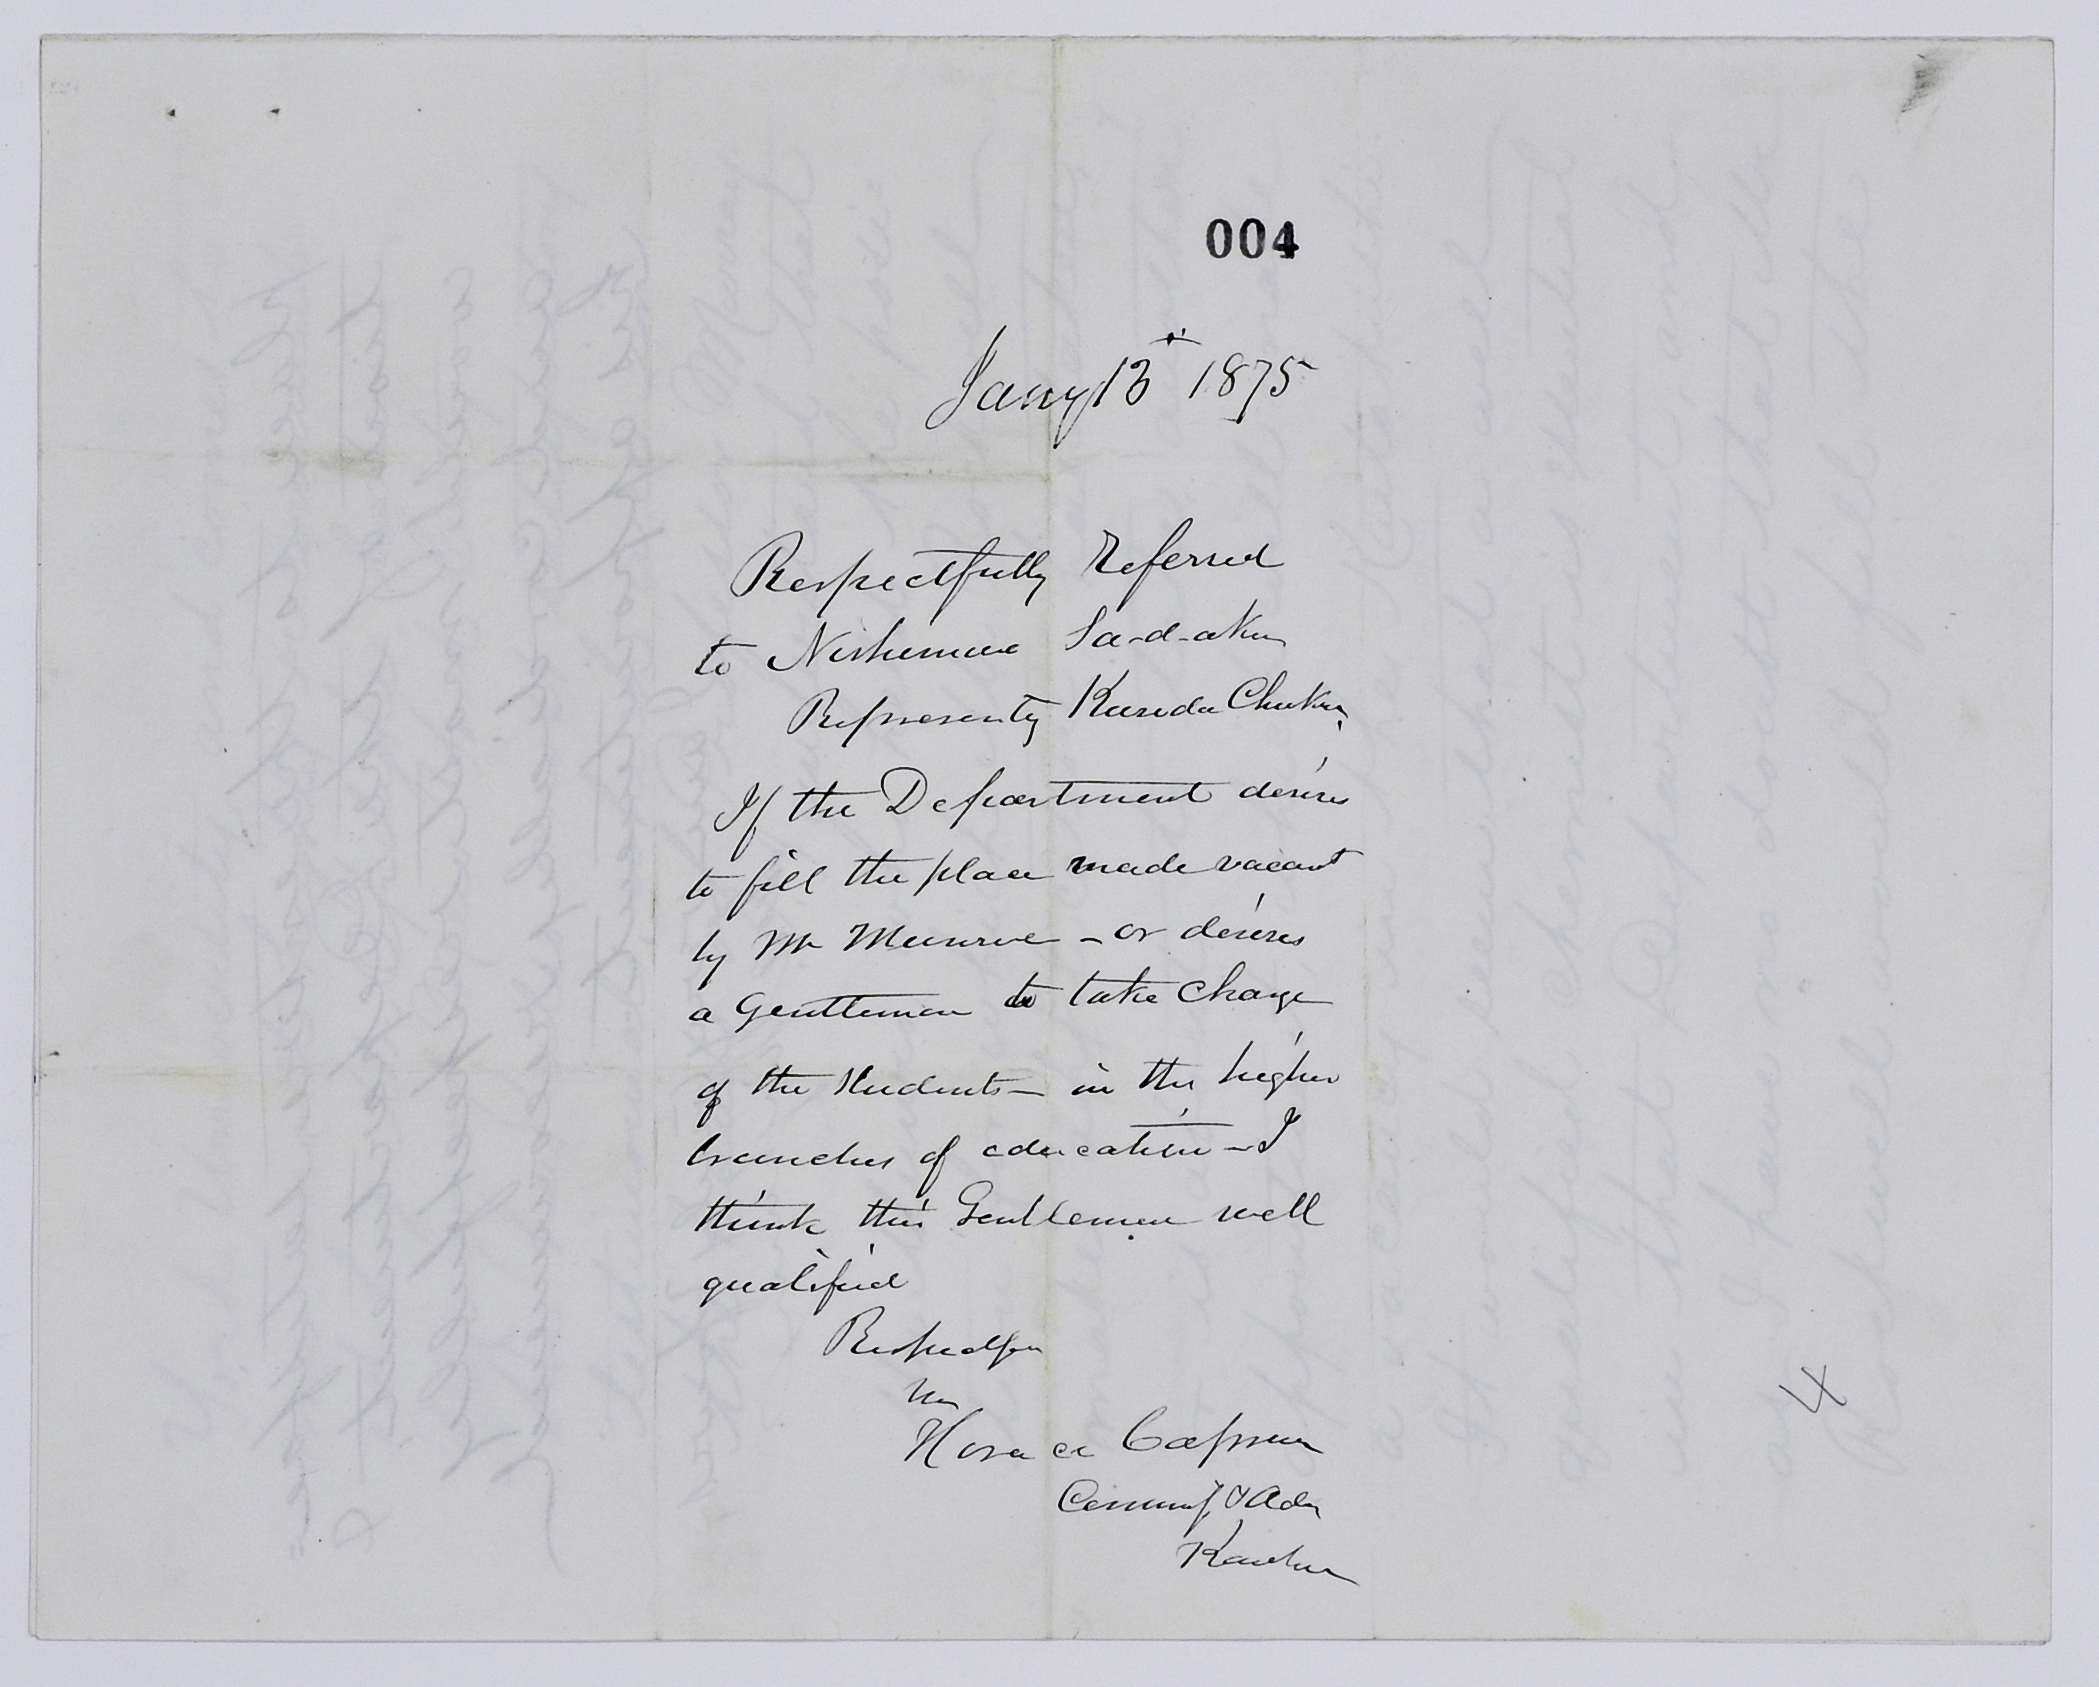 004
Jany 13th 1875
Respectfully Referred
to Nishimura Sa-d-aki
Representg Kuroda Chokan
If the Department desires
to fill the place made vacant
by Mr Munroe - or desires
a Gentleman to take Charge
of the Students - in the higher
branches of education - I
think this Gentleman well
qualified
Respectfully
Yrs
Horace Capron
Commr & Adv
Kaitakushi
4